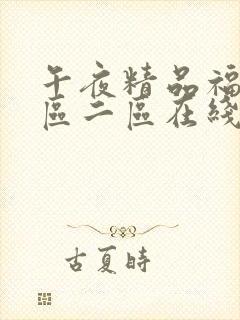 午夜精品福
區二區在綫
古夏時